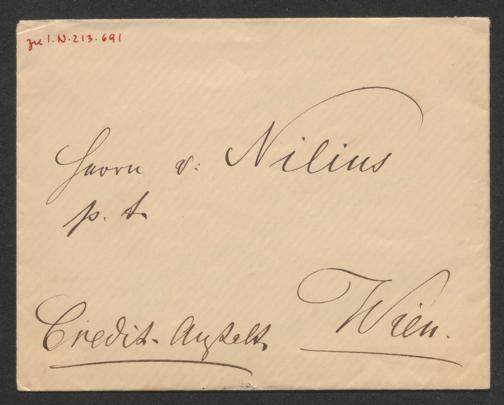 zu I.N. 213.691
Herrn v: Nilius
p. t.
Credit-Anstalt
Wien.